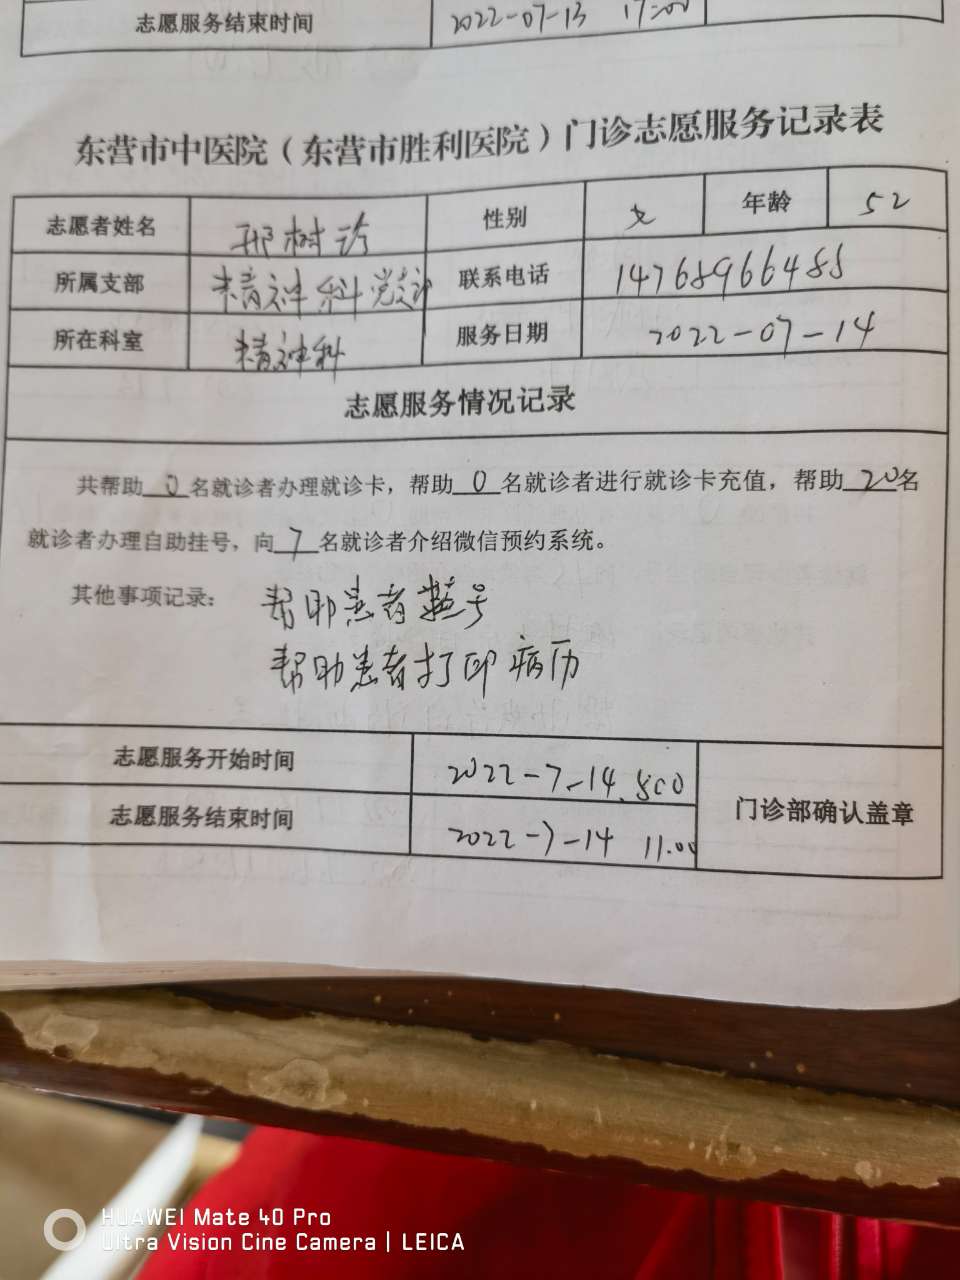 志愿服务结束时间 2022-07-13 17:00
东营市中医院（东营市胜利医院）门诊志愿服务记录表
志愿者姓名 邢树珍 性别 女 年龄 52
所属支部 精神科党支部 联系电话 14768966488
所在科室 精神科 服务日期 2022-07-14
志愿服务情况记录
共帮助 0 名就诊者办理就诊卡，帮助 0 名就诊者进行就诊卡充值，帮助 20 名
就诊者办理自助挂号，向 7 名就诊者介绍微信预约系统。
其他事项记录： 帮助患者 号
帮助患者打印病历
志愿服务开始时间 2022-7-14. 8:00
门诊部确认盖章
志愿服务结束时间 2022-7-14 11:00
HUAWEI Mate 40 Pro
Ultra Vision Cine Camera | LEICA